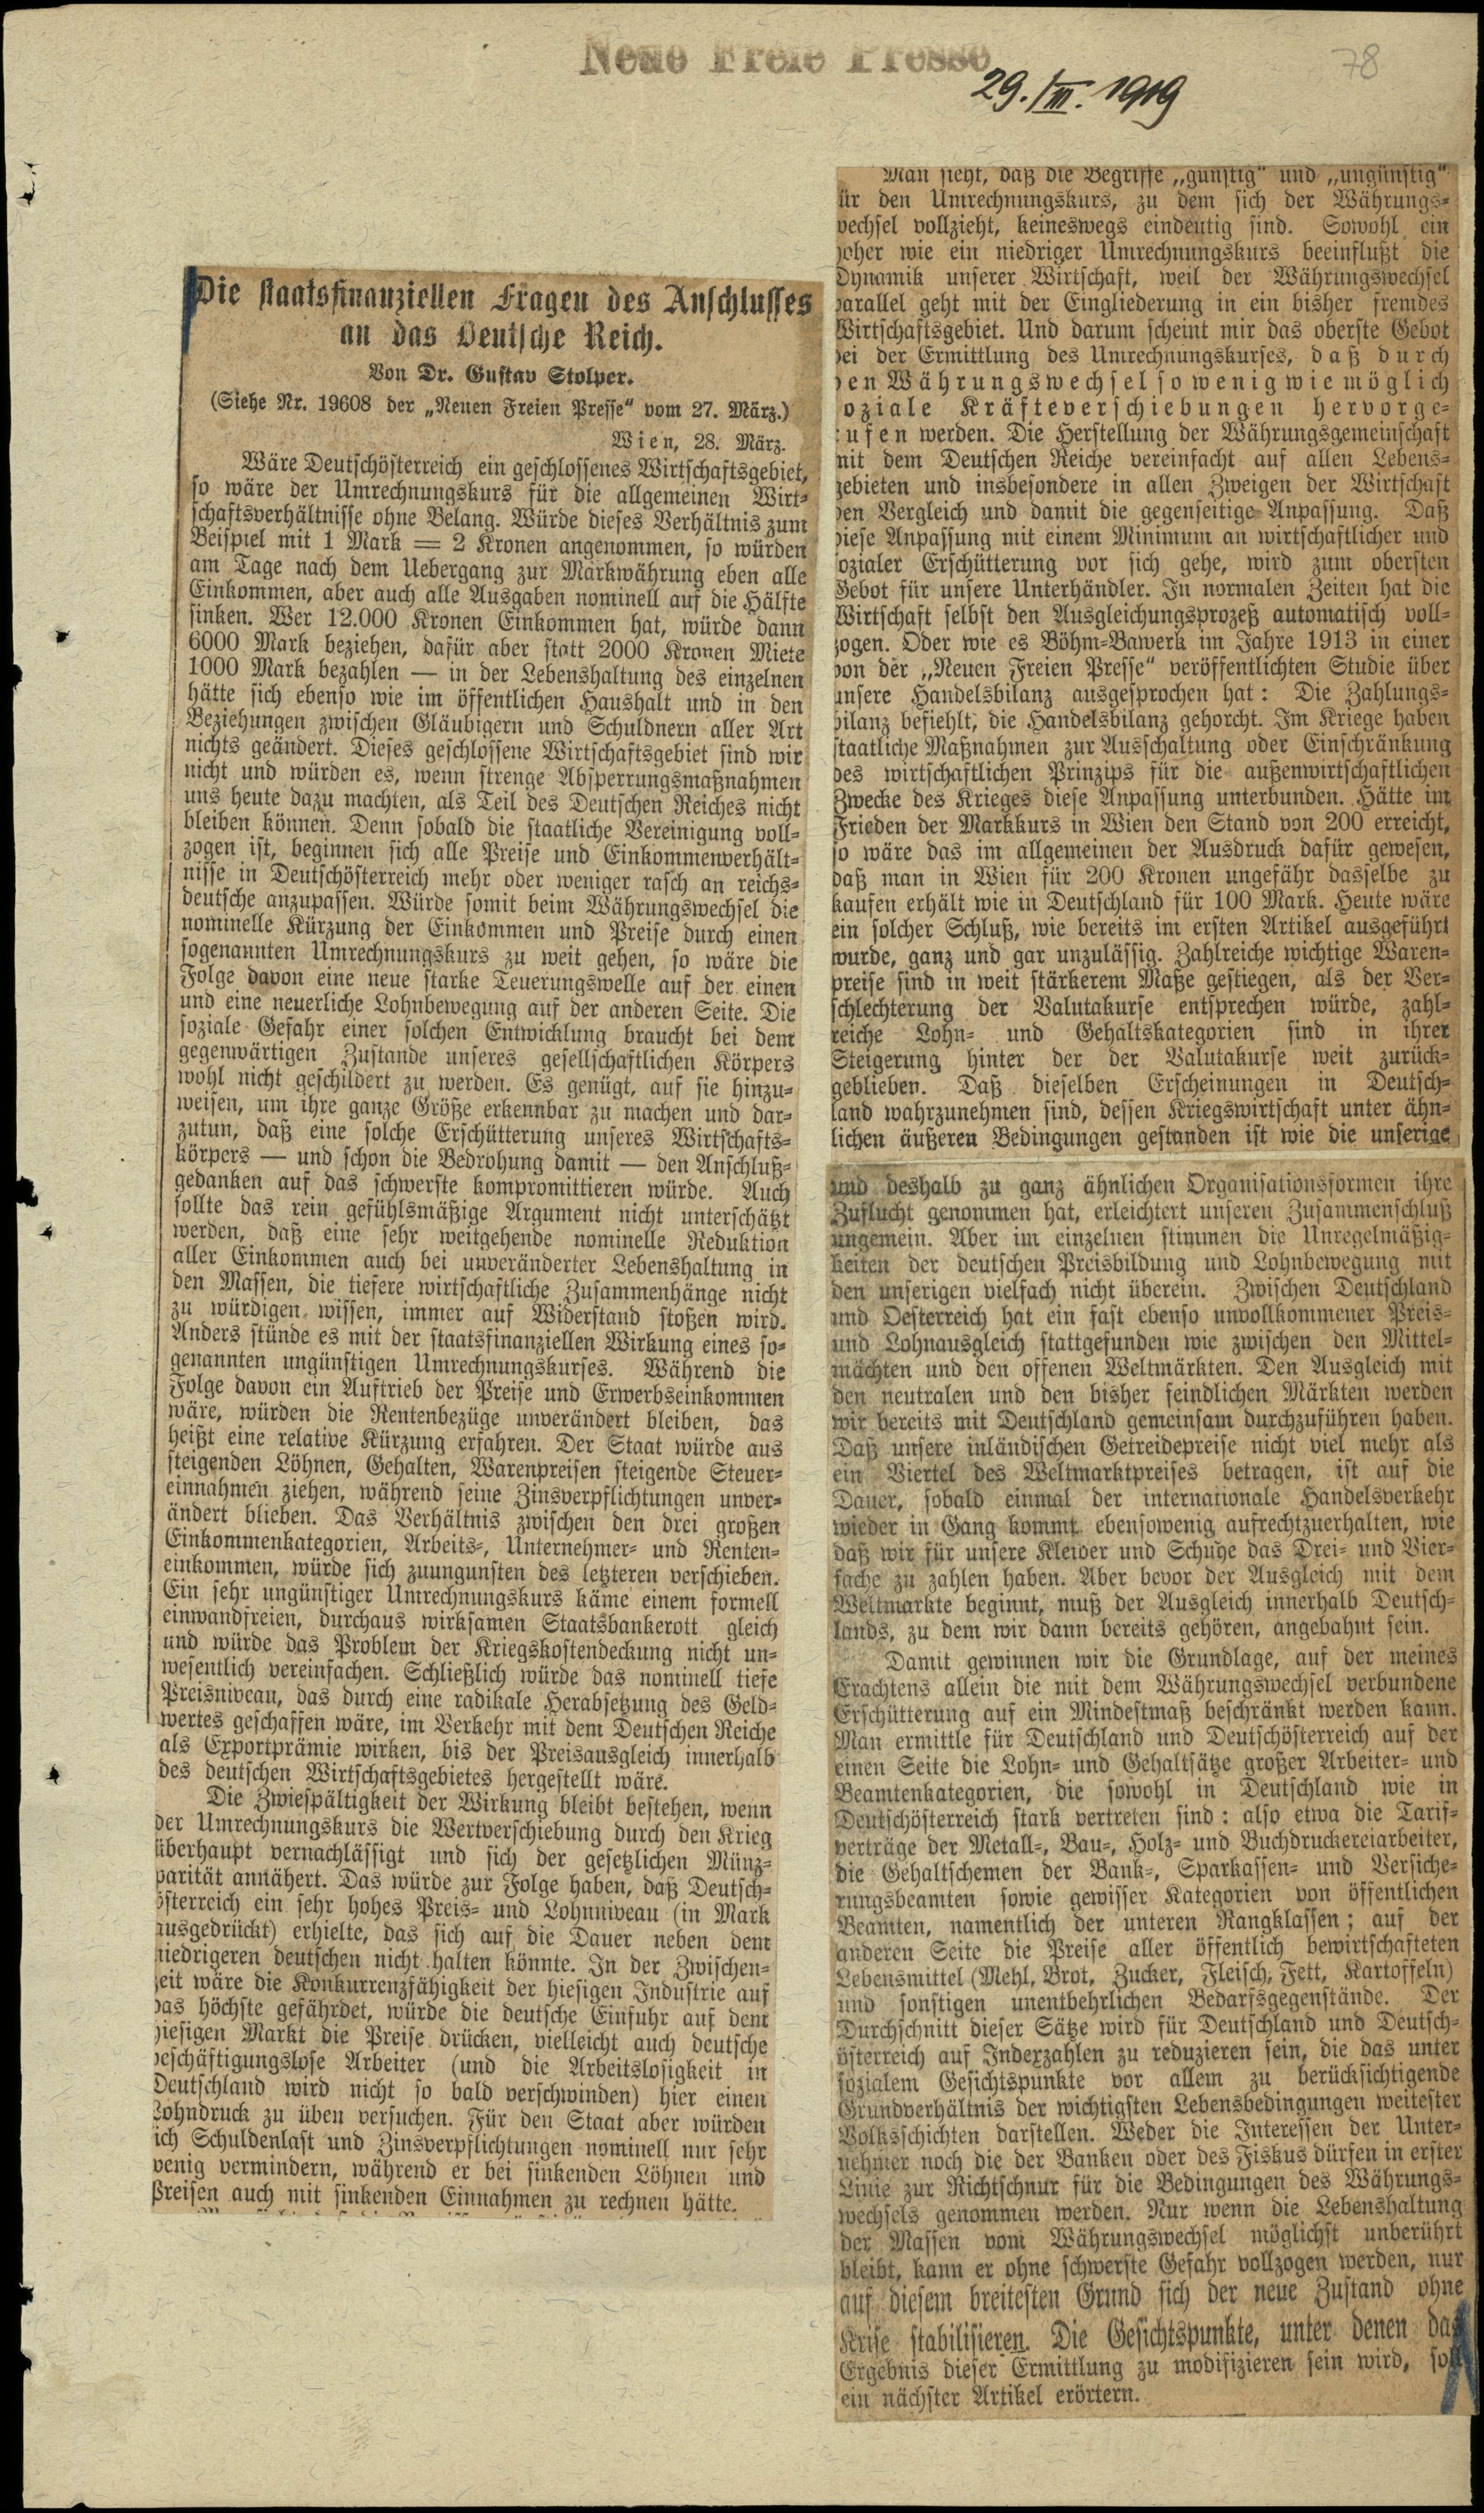 Neue Freie Presse
29./III. 1919
78
Die staatsfinanziellen Fragen des Anschlusses
an das Deutsche Reich.
Von Dr. Gustav Stolper.
(Siehe Nr. 19608 der „Neuen Freien Presse“ vom 27. März.)
Wien, 28. März.
Wäre Deutschösterreich ein geschlossenes Wirtschaftsgebiet,
so wäre der Umrechnungskurs für die allgemeinen Wirt-
schaftsverhältnisse ohne Belang. Würde dieses Verhältnis zum
Beispiel mit 1 Mark = 2 Kronen angenommen, so würden
am Tage nach dem Uebergang zur Markwährung eben alle
Einkommen, aber auch alle Ausgaben nominell auf die Hälfte
sinken. Wer 12.000 Kronen Einkommen hat, würde dann
6000 Mark beziehen, dafür aber statt 2000 Kronen Miete
1000 Mark bezahlen — in der Lebenshaltung des einzelnen
hätte sich ebenso wie im öffentlichen Haushalt und in den
Beziehungen zwischen Gläubigern und Schuldnern aller Art
nichts geändert. Dieses geschlossene Wirtschaftsgebiet sind wir
nicht und würden es, wenn strenge Absperrungsmaßnahmen
uns heute dazu machten, als Teil des Deutschen Reiches nicht
bleiben können. Denn sobald die staatliche Vereinigung voll-
zogen ist, beginnen sich alle Preise und Einkommenverhält-
nisse in Deutschösterreich mehr oder weniger rasch an reichs-
deutsche anzupassen. Würde somit beim Währungswechsel die
nominelle Kürzung der Einkommen und Preise durch einen
sogenannten Umrechnungskurs zu weit gehen, so wäre die
Folge davon eine neue starke Teuerungswelle auf der einen
und eine neuerliche Lohnbewegung auf der anderen Seite. Die
soziale Gefahr einer solchen Entwicklung braucht bei dem
gegenwärtigen Zustande unseres gesellschaftlichen Körpers
wohl nicht geschildert zu werden. Es genügt, auf sie hinzu-
weisen, um ihre ganze Größe erkennbar zu machen und dar-
zutun, daß eine solche Erschütterung unseres Wirtschafts-
körpers — und schon die Bedrohung damit — den Anschluß-
gedanken auf das schwerste kompromittieren würde. Auch
sollte das rein gefühlsmäßige Argument nicht unterschätzt
werden, daß eine sehr weitgehende nominelle Reduktion
aller Einkommen auch bei unveränderter Lebenshaltung in
den Massen, die tiefere wirtschaftliche Zusammenhänge nicht
zu würdigen wissen, immer auf Widerstand stoßen wird.
Anders stünde es mit der staatsfinanziellen Wirkung eines so-
genannten ungünstigen Umrechnungskurses. Während die
Folge davon ein Auftrieb der Preise und Erwerbseinkommen
wäre, würden die Rentenbezüge unverändert bleiben, das
heißt eine relative Kürzung erfahren. Der Staat würde aus
steigenden Löhnen, Gehalten, Warenpreisen steigende Steuer-
einnahmen ziehen, während seine Zinsverpflichtungen unver-
ändert blieben. Das Verhältnis zwischen den drei großen
Einkommenkategorien, Arbeits-, Unternehmer- und Renten-
einkommen, würde sich zuungunsten des letzteren verschieben.
Ein sehr ungünstiger Umrechnungskurs käme einem formell
einwandfreien, durchaus wirksamen Staatsbankerott gleich
und würde das Problem der Kriegskostendeckung nicht un-
wesentlich vereinfachen. Schließlich würde das nominell tiefe
Preisniveau, das durch eine radikale Herabsetzung des Geld-
wertes geschaffen wäre, im Verkehr mit dem Deutschen Reiche
als Exportprämie wirken, bis der Preisausgleich innerhalb
des deutschen Wirtschaftsgebietes hergestellt wäre.
Die Zwiespältigkeit der Wirkung bleibt bestehen, wenn
der Umrechnungskurs die Wertverschiebung durch den Krieg
überhaupt vernachlässigt und sich der gesetzlichen Münz-
parität annähert. Das würde zur Folge haben, daß Deutsch-
österreich ein sehr hohes Preis- und Lohnniveau (in Mark
ausgedrückt) erhielte, das sich auf die Dauer neben dem
niedrigeren deutschen nicht halten könnte. In der Zwischen-
zeit wäre die Konkurrenzfähigkeit der hiesigen Industrie auf
das höchste gefährdet, würde die deutsche Einfuhr auf dem
hiesigen Markt die Preise drücken, vielleicht auch deutsche
beschäftigungslose Arbeiter (und die Arbeitslosigkeit in
Deutschland wird nicht so bald verschwinden) hier einen
Lohndruck zu üben versuchen. Für den Staat aber würden
ich Schuldenlast und Zinsverpflichtungen nominell nur sehr
wenig vermindern, während er bei sinkenden Löhnen und
Preisen auch mit sinkenden Einnahmen zu rechnen hätte.
Man sieht, daß die Begriffe „günstig“ und „ungünstig“
für den Umrechnungskurs, zu dem sich der Währungs-
wechsel vollzieht, keineswegs eindeutig sind. Sowohl ein
hoher wie ein niedriger Umrechnungskurs beeinflußt die
Dynamik unserer Wirtschaft, weil der Währungswechsel
parallel geht mit der Eingliederung in ein bisher fremdes
Wirtschaftsgebiet. Und darum scheint mir das oberste Gebot
bei der Ermittlung des Umrechnungskurses, daß durch
den Währungswechsel so wenig wie möglich
soziale Kräfteverschiebungen hervorge-
rufen werden. Die Herstellung der Währungsgemeinschaft
mit dem Deutschen Reiche vereinfacht auf allen Lebens-
gebieten und insbesondere in allen Zweigen der Wirtschaft
den Vergleich und damit die gegenseitige Anpassung. Daß
diese Anpassung mit einem Minimum an wirtschaftlicher und
sozialer Erschütterung vor sich gehe, wird zum obersten
Gebot für unsere Unterhändler. In normalen Zeiten hat die
Wirtschaft selbst den Ausgleichungsprozeß automatisch voll-
zogen. Oder wie es Böhm-Bawerk im Jahre 1913 in einer
von der „Neuen Freien Presse“ veröffentlichten Studie über
unsere Handelsbilanz ausgesprochen hat: Die Zahlungs-
bilanz befiehlt, die Handelsbilanz gehorcht. Im Kriege haben
staatliche Maßnahmen zur Ausschaltung oder Einschränkung
des wirtschaftlichen Prinzips für die außenwirtschaftlichen
Zwecke des Krieges diese Anpassung unterbunden. Hätte im
Frieden der Markkurs in Wien den Stand von 200 erreicht,
so wäre das im allgemeinen der Ausdruck dafür gewesen,
daß man in Wien für 200 Kronen ungefähr dasselbe zu
kaufen erhält wie in Deutschland für 100 Mark. Heute wäre
ein solcher Schluß, wie bereits im ersten Artikel ausgeführt
wurde, ganz und gar unzulässig. Zahlreiche wichtige Waren-
preise sind in weit stärkerem Maße gestiegen, als der Ver-
schlechterung der Valutakurse entsprechen würde, zahl-
reiche Lohn- und Gehaltskategorien sind in ihrer
Steigerung hinter der der Valutakurse weit zurück-
geblieben. Daß dieselben Erscheinungen in Deutsch-
land wahrzunehmen sind, dessen Kriegswirtschaft unter ähn-
lichen äußeren Bedingungen gestanden ist wie die unserige
und deshalb zu ganz ähnlichen Organisationsformen ihre
Zuflucht genommen hat, erleichtert unseren Zusammenschluß
ungemein. Aber im einzelnen stimmen die Unregelmäßig-
keiten der deutschen Preisbildung und Lohnbewegung mit
den unserigen vielfach nicht überein. Zwischen Deutschland
und Oesterreich hat ein fast ebenso unvollkommener Preis-
und Lohnausgleich stattgefunden wie zwischen den Mittel-
mächten und den offenen Weltmärkten. Den Ausgleich mit
den neutralen und den bisher feindlichen Märkten werden
wir bereits mit Deutschland gemeinsam durchzuführen haben.
Daß unsere inländischen Getreidepreise nicht viel mehr als
ein Viertel des Weltmarktpreises betragen, ist auf die
Dauer, sobald einmal der internationale Handelsverkehr
wieder in Gang kommt ebensowenig aufrechtzuerhalten, wie
daß wir für unsere Kleider und Schuhe das Drei- und Vier-
fache zu zahlen haben. Aber bevor der Ausgleich mit dem
Weltmarkte beginnt, muß der Ausgleich innerhalb Deutsch-
lands, zu dem wir dann bereits gehören, angebahnt sein.
Damit gewinnen wir die Grundlage, auf der meines
Erachtens allein die mit dem Währungswechsel verbundene
Erschütterung auf ein Mindestmaß beschränkt werden kann.
Man ermittle für Deutschland und Deutschösterreich auf der
einen Seite die Lohn- und Gehaltsätze großer Arbeiter- und
Beamtenkategorien, die sowohl in Deutschland wie in
Deutschösterreich stark vertreten sind: also etwa die Tarif-
verträge der Metall-, Bau-, Holz- und Buchdruckereiarbeiter,
die Gehaltschemen der Bank-, Sparkassen- und Versiche-
rungsbeamten sowie gewisser Kategorien von öffentlichen
Beamten, namentlich der unteren Rangklassen; auf der
anderen Seite die Preise aller öffentlich bewirtschafteten
Lebensmittel (Mehl, Brot, Zucker, Fleisch, Fett, Kartoffeln)
und sonstigen unentbehrlichen Bedarfsgegenstände. Der
Durchschnitt dieser Sätze wird für Deutschland und Deutsch-
österreich auf Indexzahlen zu reduzieren sein, die das unter
sozialem Gesichtspunkte vor allem zu berücksichtigende
Grundverhältnis der wichtigsten Lebensbedingungen weitester
Volksschichten darstellen. Weder die Interessen der Unter-
nehmer noch die der Banken oder des Fiskus dürfen in erster
Linie zur Richtschnur für die Bedingungen des Währungs-
wechsels genommen werden. Nur wenn die Lebenshaltung
der Massen vom Währungswechsel möglichst unberührt
bleibt, kann er ohne schwerste Gefahr vollzogen werden, nur
auf diesem breitesten Grund sich der neue Zustand ohne
Krise stabilisieren. Die Gesichtspunkte, unter denen das
Ergebnis dieser Ermittlung zu modifizieren sein wird, soll
ein nächster Artikel erörtern.